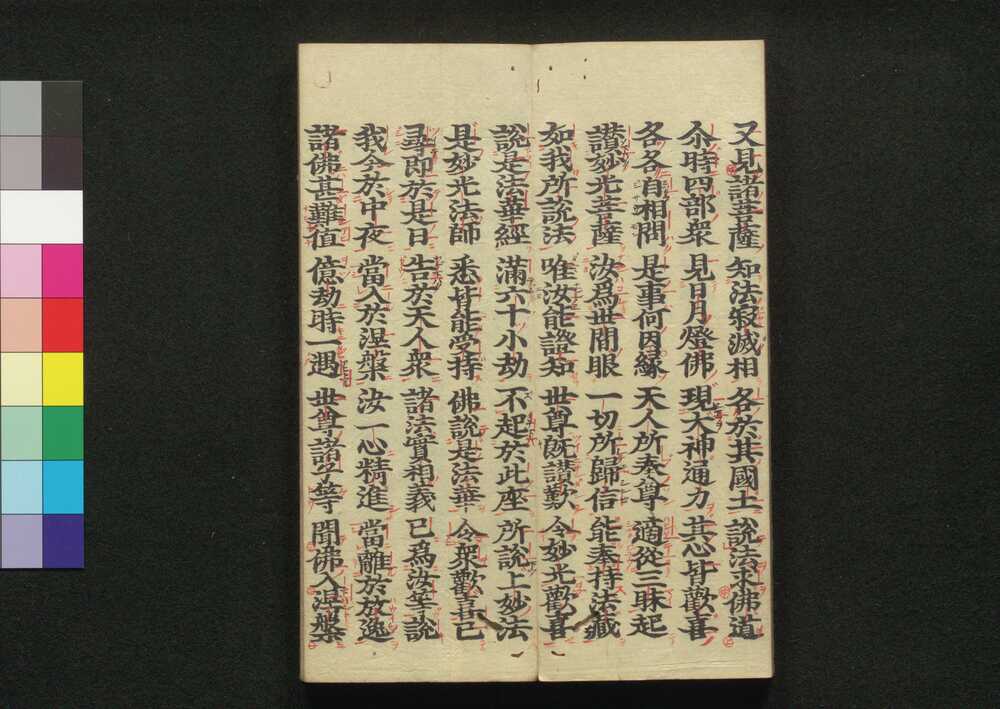 又見諸菩薩 知法寂滅相 各於其國土 說法求佛道
尒時四部衆 見日月燈佛 現大神通力 其心皆歡喜
各各自相問 是事何因緣 天人所奉尊 適從三昧起
讃妙光菩薩 汝爲世間眼 一切所歸信 能奉持法藏
如我所說法 唯汝能證知 世尊既讃歎 令妙光歡喜
說是法華經 滿六十小劫 不起於此座 所說上妙法
是妙光法師 悉皆能受持 佛說是法華 令衆歡喜已
尋即於是日 告於天人衆 諸法實相義 已爲汝等說
我今於中夜 當入於涅槃 汝一心精進 當離於放逸
諸佛甚難值 億劫時一遇 世尊諸子等 聞佛入涅槃